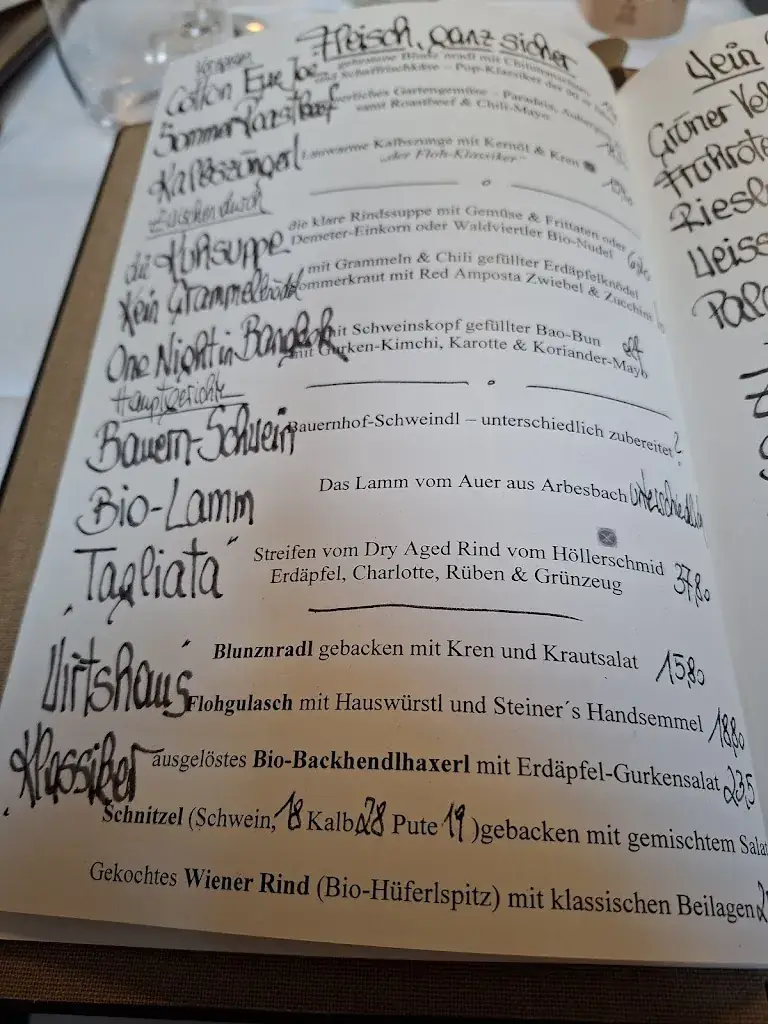 Fleisch, ganz sicher
Vorspeisen
Cotton Eye Joe gebratene Blunznradl mit
und Schaffrischkäse – Pop-Klassiker der 90
Sommer Roastbeef Gartengemüse – Paradeis,
samt Roastbeef & Chili-Mayo
Kalbszüngerl Lauwarme Kalbszunge mit Kernöl & Kren
„der Floh-Klassiker"
Zwischendurch
die Kuhsuppe die klare Rindssuppe mit Gemüse & Frittaten oder
Demeter-Einkorn oder Waldviertler Bio-Nudel
Kein Grammelknödel mit Grammeln & Chili gefüllter Erdäpfelknödel
ommerkraut mit Red Amposta Zwiebel & Zucchini
One Night in Bangkok mit Schweinskopf gefüllter Bao-Bun
mit Gurken-Kimchi, Karotte & Koriander-Mayo
Hauptgerichte
Bauern-Schwein Bauernhof-Schweindl – unterschiedlich zubereitet ?
Bio-Lamm Das Lamm vom Auer aus Arbesbach unterschiedlich
„Tagliata" Streifen vom Dry Aged Rind vom Höllerschmid 37,80
Erdäpfel, Charlotte, Rüben & Grünzeug
„Wirtshaus Klassiker"
Blunznradl gebacken mit Kren und Krautsalat 15,80
Flohgulasch mit Hauswürstl und Steiner´s Handsemmel 18,80
ausgelöstes Bio-Backhendlhaxerl mit Erdäpfel-Gurkensalat 23,5
Schnitzel (Schwein, 18 Kalb 28 Pute 19 )gebacken mit gemischtem Sala
Gekochtes Wiener Rind (Bio-Hüferlspitz) mit klassischen Beilagen 2
Wein
Grüner Ve
Riesl
Weiss